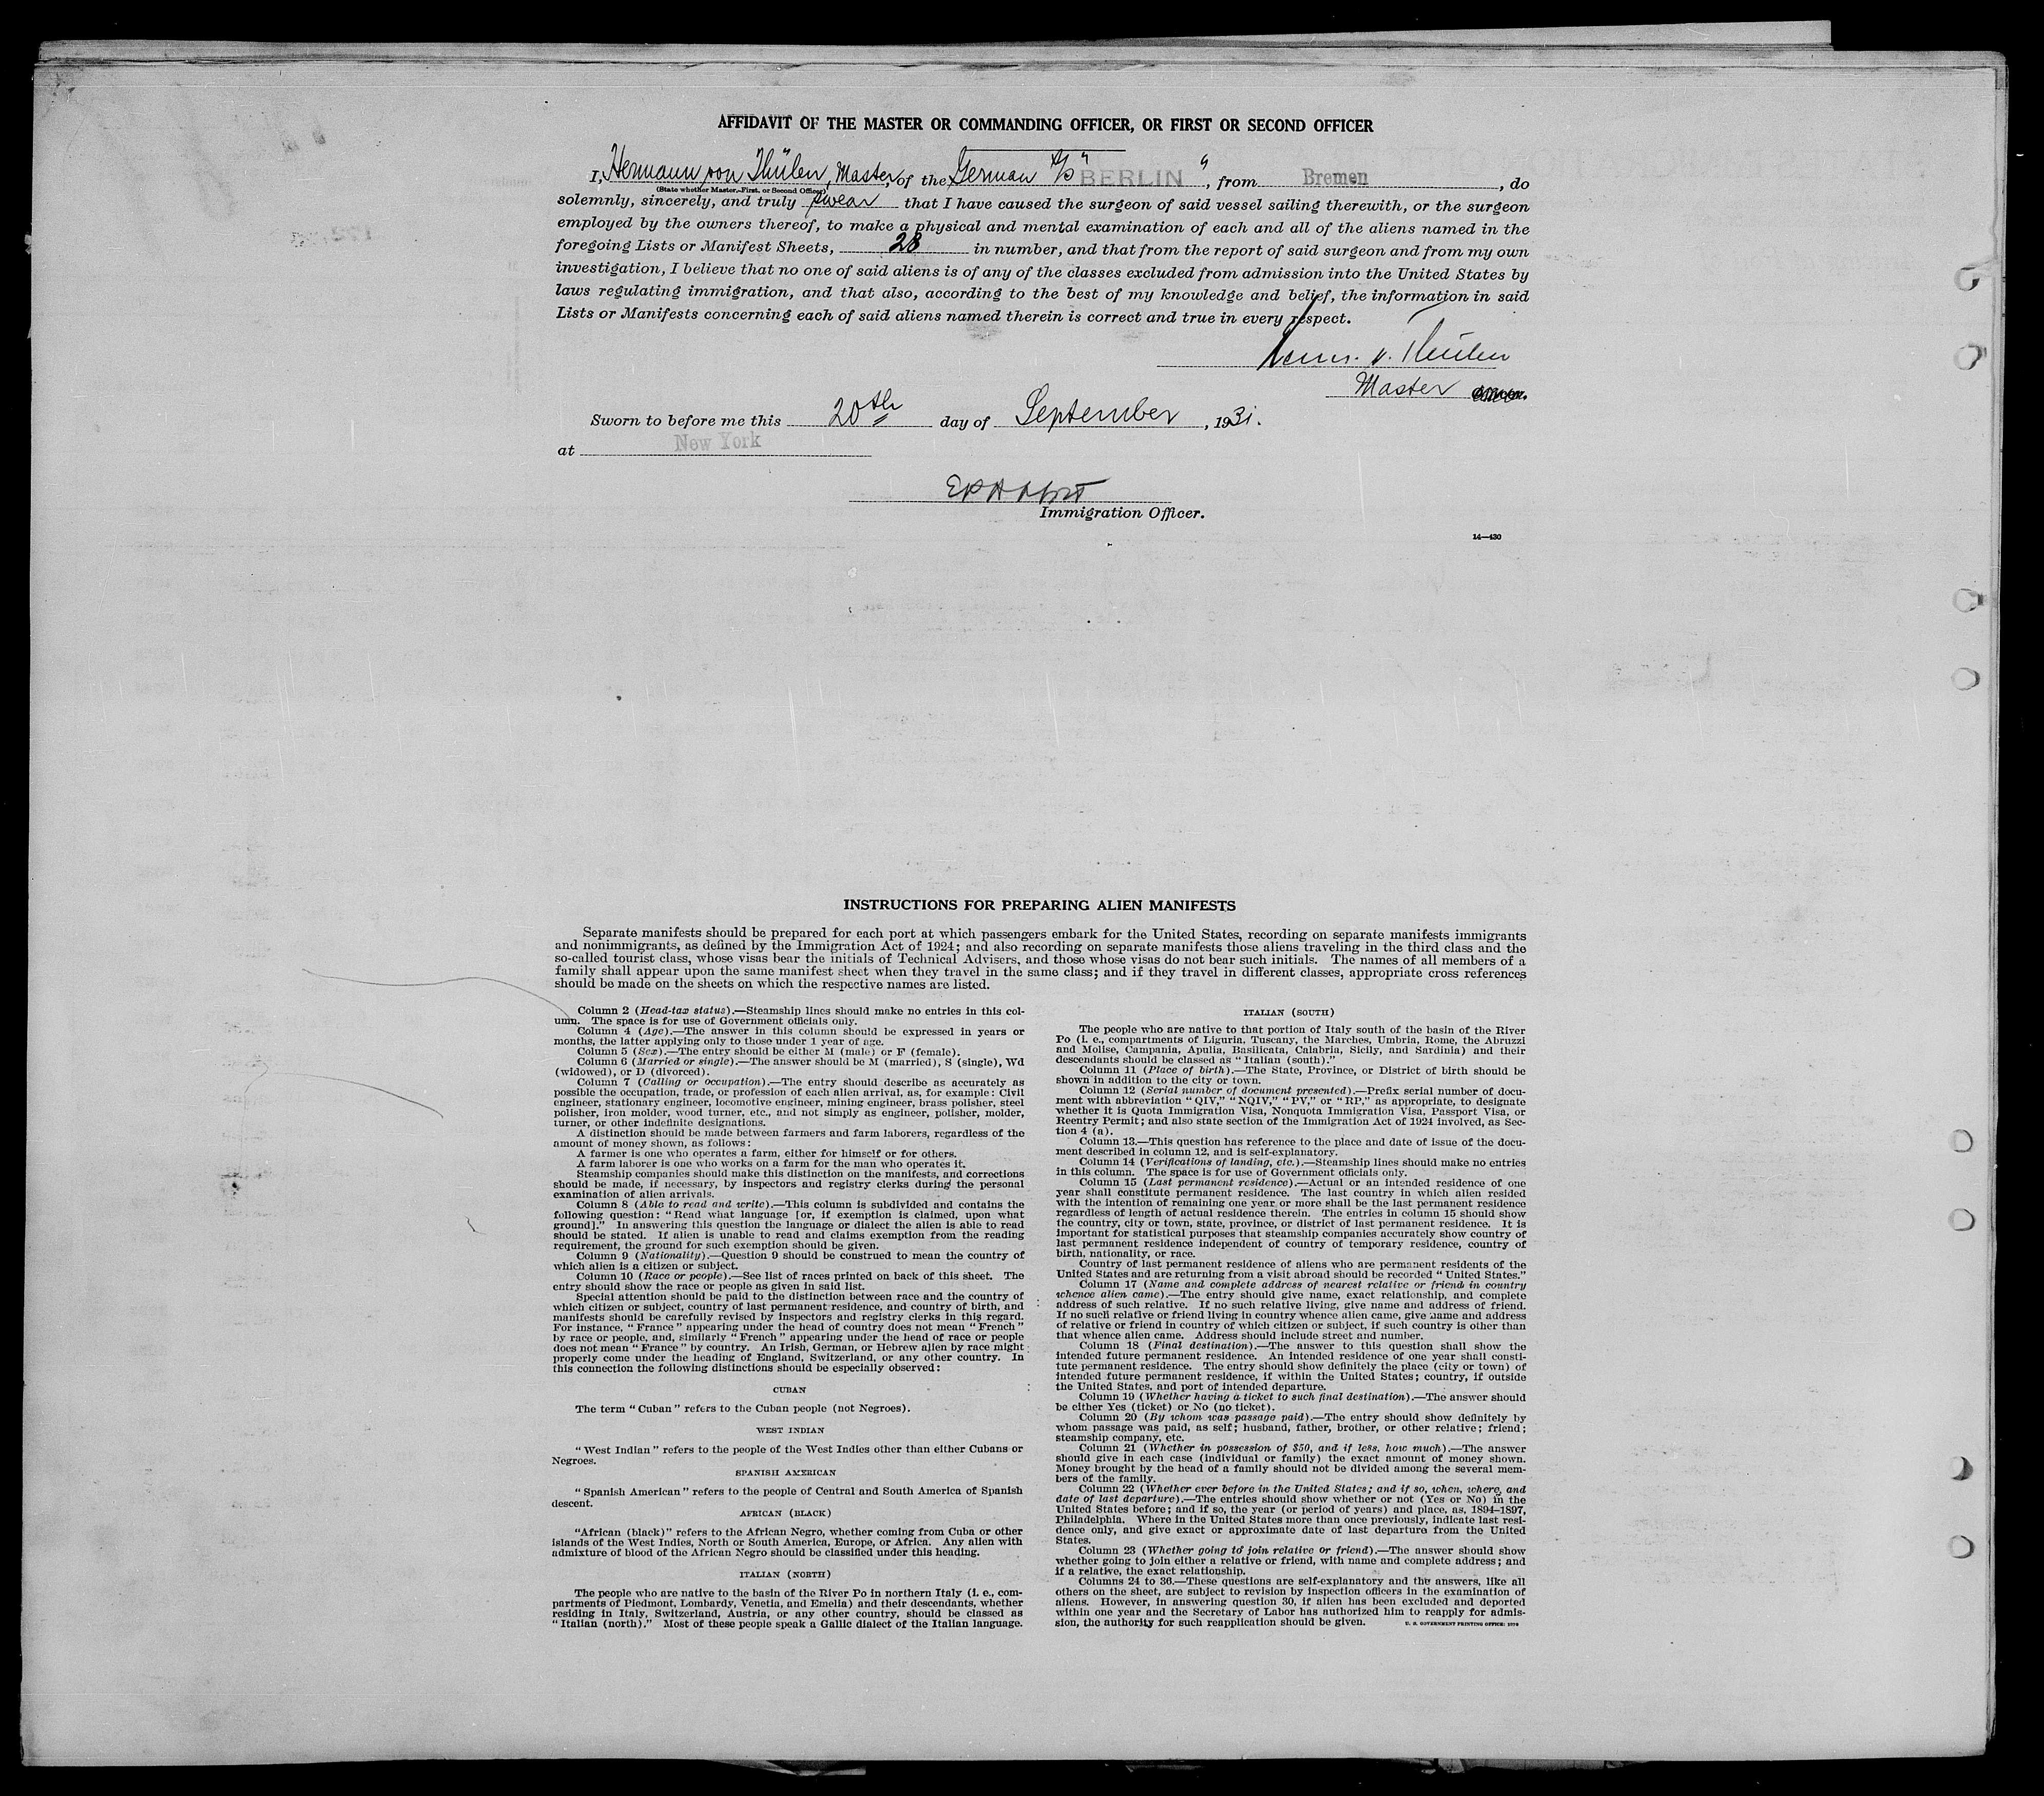 AFFIDAVIT OF THE MASTER OR COMMANDING OFFICER, OR FIRST OR SECOND OFFICER
I, Hermann von Thülen, Master, of the German S/S "BERLIN", from Bremen, do
(State whether Master, First, or Second Officer)
solemnly, sincerely, and truly swear that I have caused the surgeon of said vessel sailing therewith, or the surgeon
employed by the owners thereof, to make a physical and mental examination of each and all of the aliens named in the
foregoing Lists or Manifest Sheets, 28 in number, and that from the report of said surgeon and from my own
investigation, I believe that no one of said aliens is of any of the classes excluded from admission into the United States by
laws regulating immigration, and that also, according to the best of my knowledge and belief, the information in said
Lists or Manifests concerning each of said aliens named therein is correct and true in every respect.
v. Thülen
Master
Sworn to before me this 20th day of September, 1931.
at New York
Immigration Officer.
14—430
INSTRUCTIONS FOR PREPARING ALIEN MANIFESTS
Separate manifests should be prepared for each port at which passengers embark for the United States, recording on separate manifests immigrants
and nonimmigrants, as defined by the Immigration Act of 1924; and also recording on separate manifests those aliens traveling in the third class and the
so-called tourist class, whose visas bear the initials of Technical Advisers, and those whose visas do not bear such initials. The names of all members of a
family shall appear upon the same manifest sheet when they travel in the same class; and if they travel in different classes, appropriate cross references
should be made on the sheets on which the respective names are listed.
Column 2 (Head-tax status).—Steamship lines should make no entries in this col-
umn. The space is for use of Government officials only.
Column 4 (Age).—The answer in this column should be expressed in years or
months, the latter applying only to those under 1 year of age.
Column 5 (Sex).—The entry should be either M (male) or F (female).
Column 6 (Married or single).—The answer should be M (married), S (single), Wd
(widowed), or D (divorced).
Column 7 (Calling or occupation).—The entry should describe as accurately as
possible the occupation, trade, or profession of each alien arrival, as, for example: Civil
engineer, stationary engineer, locomotive engineer, mining engineer, brass polisher, steel
polisher, iron molder, wood turner, etc., and not simply as engineer, polisher, molder,
turner, or other indefinite designations.
A distinction should be made between farmers and farm laborers, regardless of the
amount of money shown, as follows:
A farmer is one who operates a farm, either for himself or for others.
A farm laborer is one who works on a farm for the man who operates it.
Steamship companies should make this distinction on the manifests, and corrections
should be made, if necessary, by inspectors and registry clerks during the personal
examination of alien arrivals.
Column 8 (Able to read and write).—This column is subdivided and contains the
following question: "Read what language [or, if exemption is claimed, upon what
ground]." In answering this question the language or dialect the alien is able to read
should be stated. If alien is unable to read and claims exemption from the reading
requirement, the ground for such exemption should be given.
Column 9 (Nationality).—Question 9 should be construed to mean the country of
which alien is a citizen or subject.
Column 10 (Race or people).—See list of races printed on back of this sheet. The
entry should show the race or people as given in said list.
Special attention should be paid to the distinction between race and the country of
which citizen or subject, country of last permanent residence, and country of birth, and
manifests should be carefully revised by inspectors and registry clerks in this regard.
For instance, "France" appearing under the head of country does not mean "French"
by race or people, and, similarly "French" appearing under the head of race or people
does not mean "France" by country. An Irish, German, or Hebrew alien by race might
properly come under the heading of England, Switzerland, or any other country. In
this connection the following distinctions should be especially observed:
CUBAN
The term "Cuban" refers to the Cuban people (not Negroes).
WEST INDIAN
"West Indian" refers to the people of the West Indies other than either Cubans or
Negroes.
SPANISH AMERICAN
"Spanish American" refers to the people of Central and South America of Spanish
descent.
AFRICAN (BLACK)
"African (black)" refers to the African Negro, whether coming from Cuba or other
islands of the West Indies, North or South America, Europe, or Africa. Any alien with
admixture of blood of the African Negro should be classified under this heading.
ITALIAN (NORTH)
The people who are native to the basin of the River Po in northern Italy (i. e., com-
partments of Piedmont, Lombardy, Venetia, and Emelia) and their descendants, whether
residing in Italy, Switzerland, Austria, or any other country, should be classed as
"Italian (north)." Most of these people speak a Gallic dialect of the Italian language.
ITALIAN (SOUTH)
The people who are native to that portion of Italy south of the basin of the River
Po (i. e., compartments of Liguria, Tuscany, the Marches, Umbria, Rome, the Abruzzi
and Molise, Campania, Apulia, Basilicata, Calabria, Sicily, and Sardinia) and their
descendants should be classed as "Italian (south)."
Column 11 (Place of birth).—The State, Province, or District of birth should be
shown in addition to the city or town.
Column 12 (Serial number of document presented).—Prefix serial number of docu-
ment with abbreviation "QIV," "NQIV," "PV," or "RP," as appropriate, to designate
whether it is Quota Immigration Visa, Nonquota Immigration Visa, Passport Visa, or
Reentry Permit; and also state section of the Immigration Act of 1924 involved, as Sec-
tion 4 (a).
Column 13.—This question has reference to the place and date of issue of the docu-
ment described in column 12, and is self-explanatory.
Column 14 (Verifications of landing, etc.).—Steamship lines should make no entries
in this column. The space is for use of Government officials only.
Column 15 (Last permanent residence).—Actual or an intended residence of one
year shall constitute permanent residence. The last country in which alien resided
with the intention of remaining one year or more shall be the last permanent residence
regardless of length of actual residence therein. The entries in column 15 should show
the country, city or town, state, province, or district of last permanent residence. It is
important for statistical purposes that steamship companies accurately show country of
last permanent residence independent of country of temporary residence, country of
birth, nationality, or race.
Country of last permanent residence of aliens who are permanent residents of the
United States and are returning from a visit abroad should be recorded "United States."
Column 17 (Name and complete address of nearest relative or friend in country
whence alien came).—The entry should give name, exact relationship, and complete
address of such relative. If no such relative living, give name and address of friend.
If no such relative or friend living in country whence alien came, give name and address
of relative or friend in country of which citizen or subject, if such country is other than
that whence alien came. Address should include street and number.
Column 18 (Final destination).—The answer to this question shall show the
intended future permanent residence. An intended residence of one year shall consti-
tute permanent residence. The entry should show definitely the place (city or town) of
intended future permanent residence, if within the United States; country, if outside
the United States, and port of intended departure.
Column 19 (Whether having a ticket to such final destination).—The answer should
be either Yes (ticket) or No (no ticket).
Column 20 (By whom was passage paid).—The entry should show definitely by
whom passage was paid, as self; husband, father, brother, or other relative; friend;
steamship company, etc.
Column 21 (Whether in possession of $50, and if less, how much).—The answer
should give in each case (individual or family) the exact amount of money shown.
Money brought by the head of a family should not be divided among the several mem-
bers of the family.
Column 22 (Whether ever before in the United States; and if so, when, where, and
date of last departure).—The entries should show whether or not (Yes or No) in the
United States before; and if so, the year (or period of years) and place, as, 1894-1897,
Philadelphia. Where in the United States more than once previously, indicate last resi-
dence only, and give exact or approximate date of last departure from the United
States.
Column 23 (Whether going to join relative or friend).—The answer should show
whether going to join either a relative or friend, with name and complete address; and
if a relative, the exact relationship.
Columns 24 to 36.—These questions are self-explanatory and the answers, like all
others on the sheet, are subject to revision by inspection officers in the examination of
aliens. However, in answering question 30, if alien has been excluded and deported
within one year and the Secretary of Labor has authorized him to reapply for admis-
sion, the authority for such reapplication should be given.
U. S. GOVERNMENT PRINTING OFFICE: